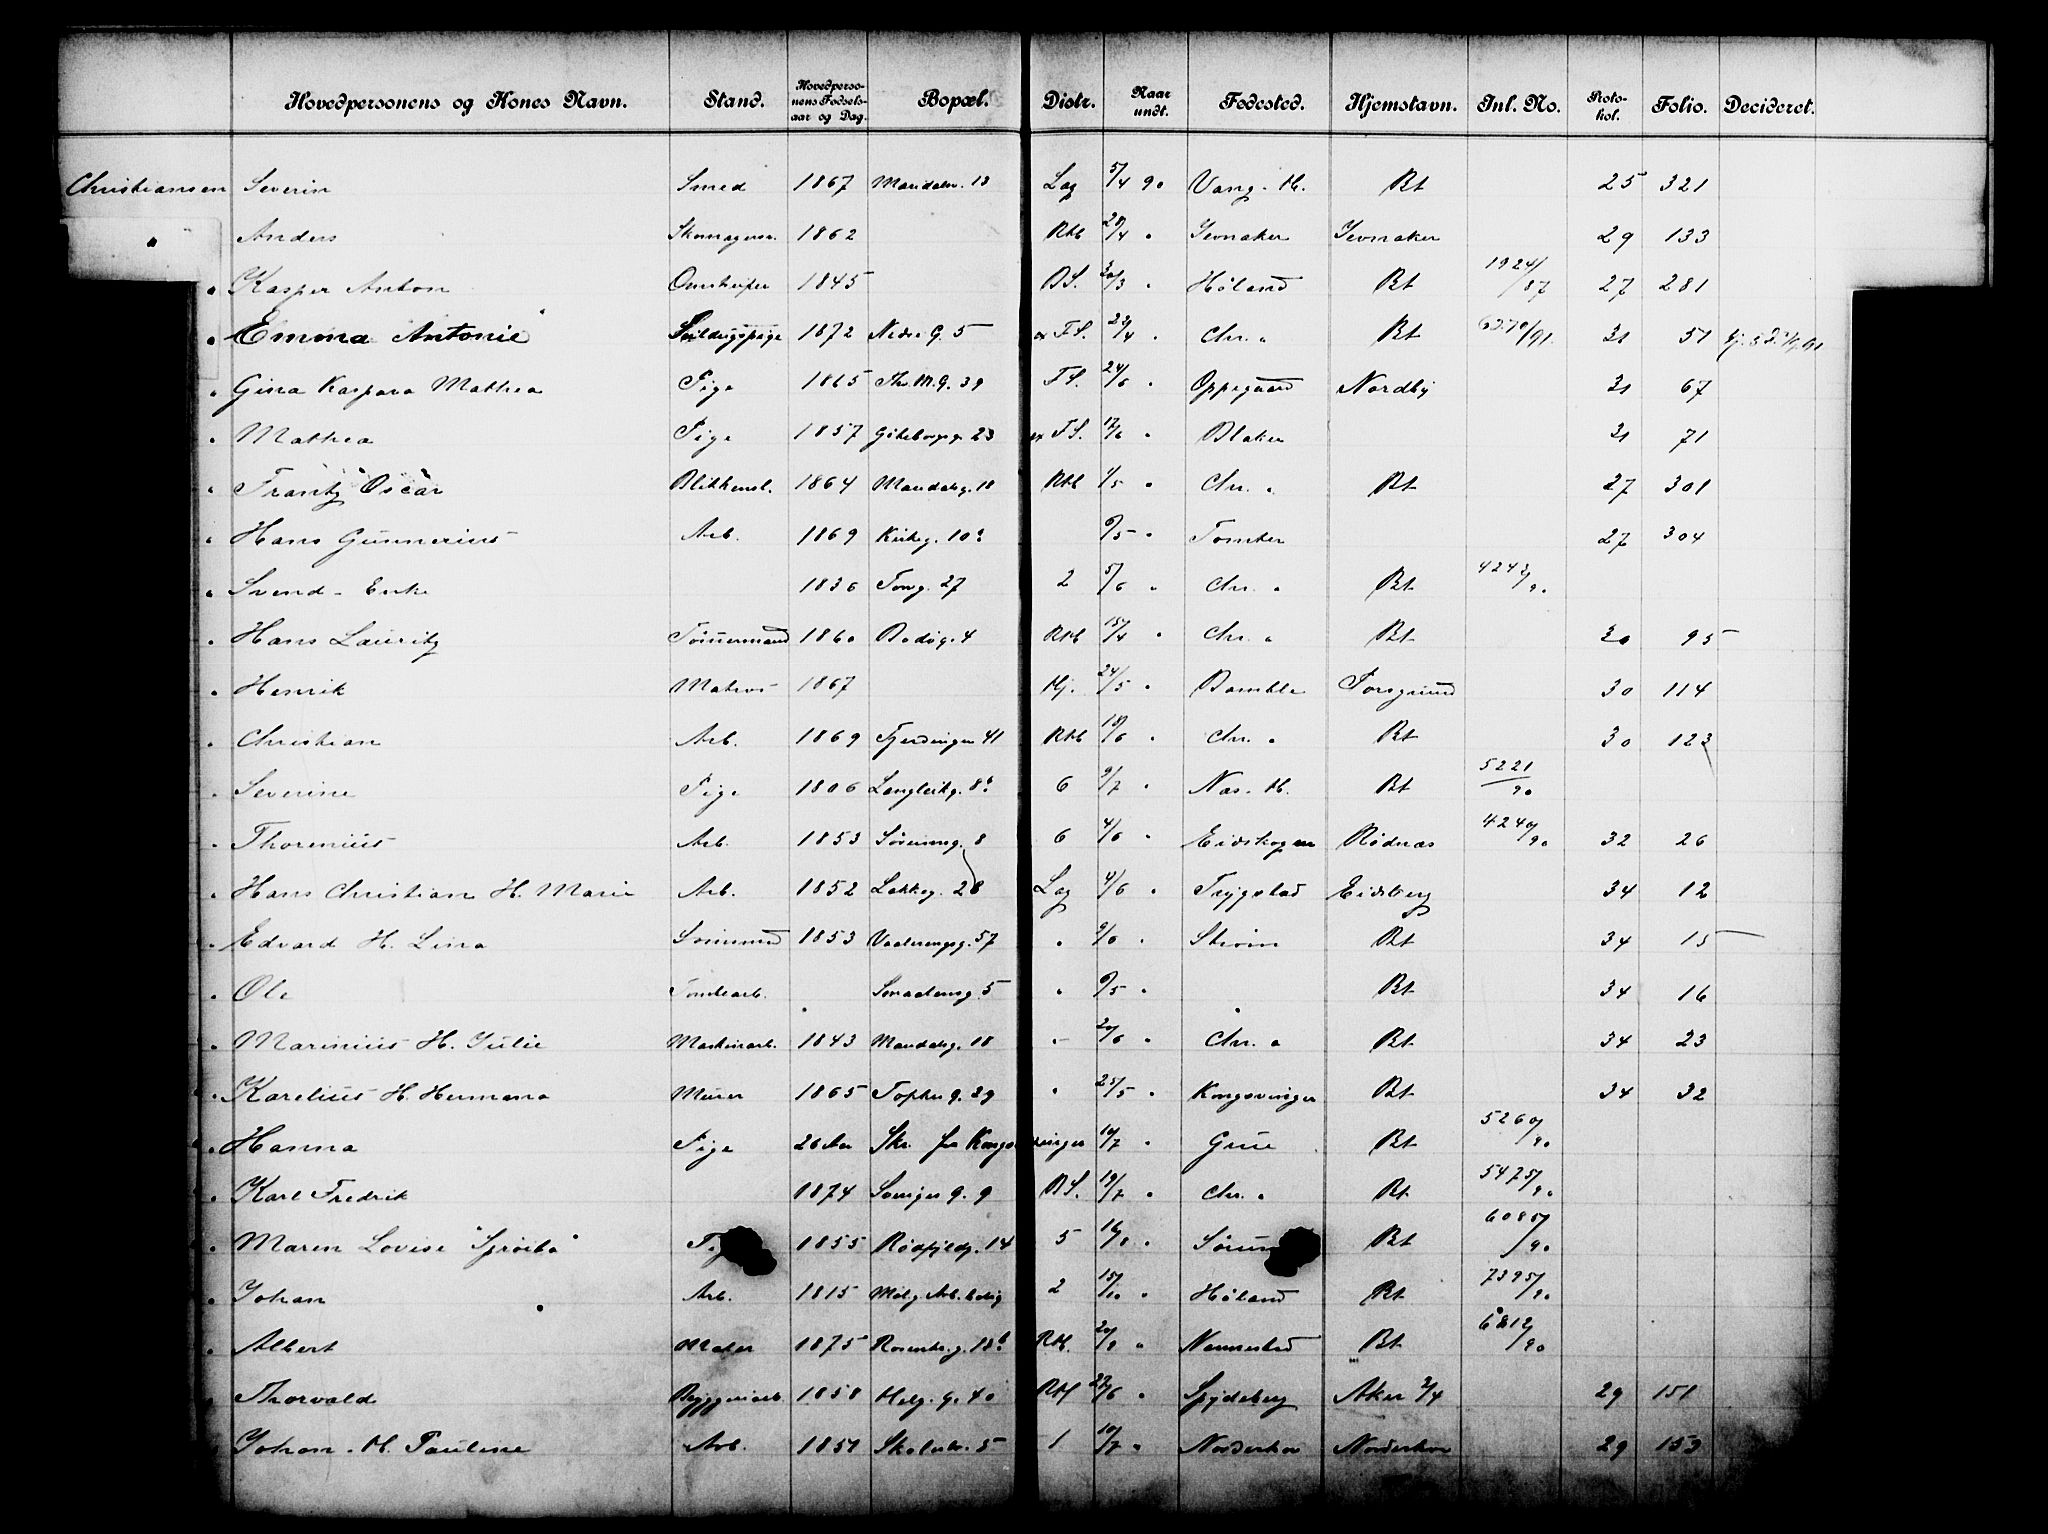 Hovedpersonens og Kones Navn. Stand. Hovedperso-nens Fødsels-aar og Dag. Bopæl. Distr. Naar undt. Fødested. Hjemstavn. Inl. No. Proto-kol. Folio. Decideret.
Christiansen Severin Smed 1867 Maridalsv. 13 Lag 5/4 90 Vang. H. Bt 25 321
" Anders Skomagersv. 1862 Rkb 28/4 " Jevnaker Jevnaker 29 133
" Kasper Anton Omstreifer 1845 BS. 20/3 " Høland Bt 1924/87 27 281
" Emma Antonie 1872 Nedre G. 5 FS. 23/4 " Chr. a Bt 31 51
" Gina Kaspara Mathea Pige 1865 Th. M. g. 39 FS. 24/6 " Oppegaard Nordby 31 67
" Mathea Pige 1857 Göteborgg. 23 FS. 17/6 " Blaker 31 71
" Frantz Oscar Blikkensl. 1864 Mandalsg. 18 Rkb 1/5 " Chr. a Bt 27 301
" Hans Gunnerius Arb. 1869 Kirkeg. 10 6/5 " Tomter 27 304
" Svend - Enke 1836 Torvg. 27 2 5/6 " Chr. a Bt 4242/90
" Hans Lauritz Tømmermand 1860 Bodøg. 4 Rkb 15/4 " Chr. a Bt 30 95
" Henrik Matros 1867 Hj. 24/5 " Bamble Porsgrund 30 114
" Christian Arb. 1869 Fjerdingen 41 Rkb 18/6 " Chr. a Bt 30 123
" Severine Pige 1806 Langleikg. 8b 6 9/7 " Næs. H. Bt 5221/90
" Thorenius Arb. 1853 Sörensg. 8 6 4/6 " Eidskogen Rødnæs 4240/90 32 26
" Hans Christian H. Marie Arb. 1852 Lakkeg. 28 Lag 4/6 " Trygstad Eidsberg 34 12
" Edvard H. Lina 1853 Vaalerengsg. 57 " 6/6 " Strøm Bt 34 15
" Ole Tomtearb. Smaalensg. 5 " 6/5 " Bt 34 16
" Marinius H. Julie Maskinarb. 1843 Mandalsg. 18 " 20/6 " Chr. a Bt 34 23
" Karelius H. Hermana Murer 1865 Tofthes g. 39 " 25/5 " Kongsvinger Bt 34 32
" Hanna Pige 26 Aar Skr. fra Kongsvinger 10/7 " Grue Bt 5260/90
" Karl Fredrik 1874 Sveriges g. 9 BS. 19/7 " Chr. a Bt 5475/90
" Maren Lovise 1855 Rødfyldg. 14 5 16/8 " Bt 6085/90
" Johan Arb. 1815 Mølg. Arb. bolig 2 15/10 " Høland Bt 7395/90
" Albert Maler 1875 Rosenkr. g. 18b Rkb. 20/9 " Nannestad Bt
" Thorvald Bryggeriarb. 1858 Helg. g. 40 Rkb 27/6 " Spydeberg Aker 2/4 29 151
" Johan. H. Pauline Arb. 1851 Skolestr. 5 1 10/7 " Norderhov Norderhov 29 153